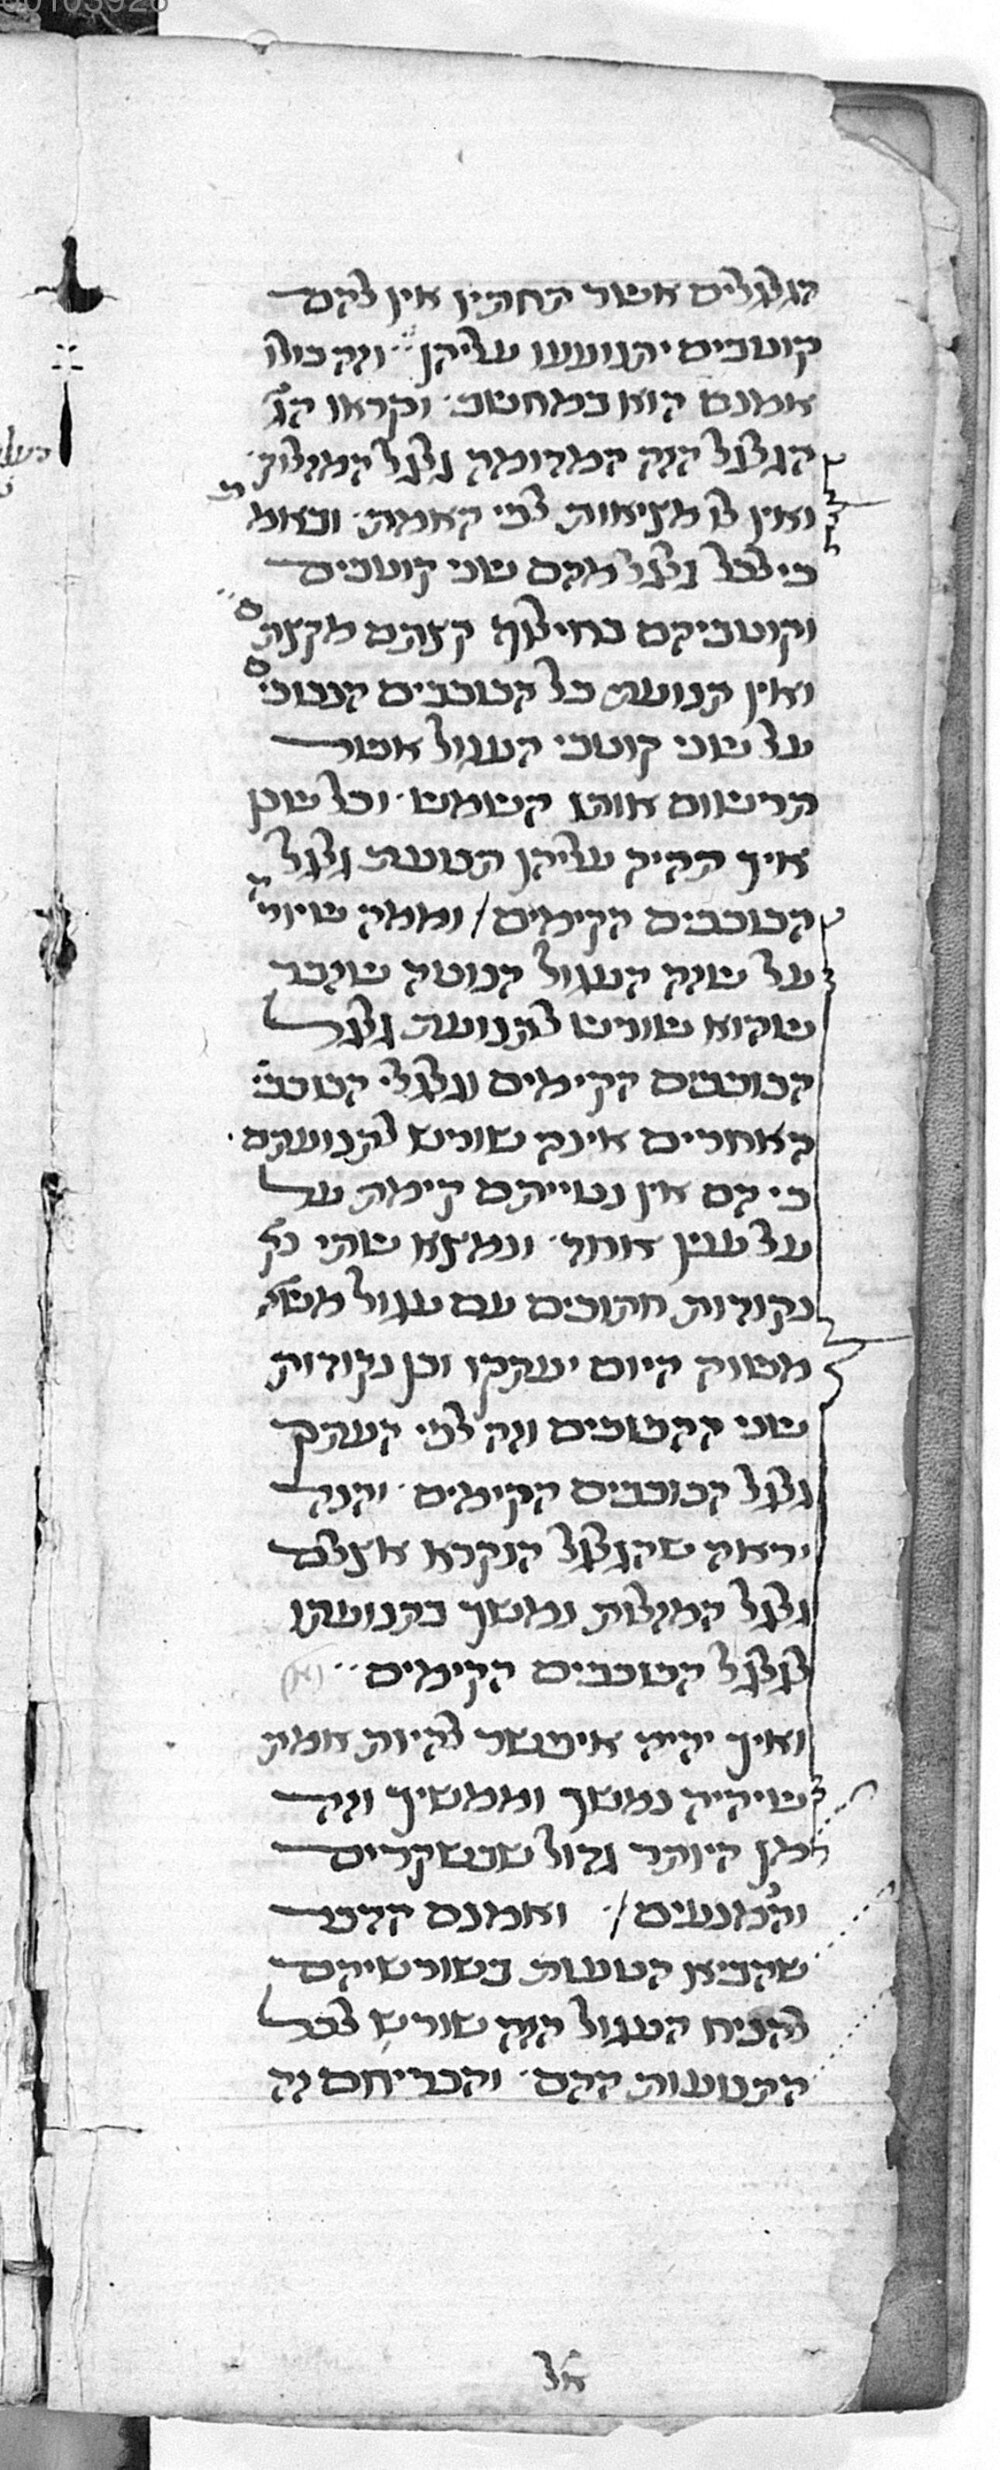 הגלגלים אשר תחתיו אין להם
קוטבים יתנועעו עליהן וזה כולו
אמנם הוא במחשב׳ וקראו הג׳
הגלגל הזה המדומה גלגל המזלות׳
ואין לו מציאות לפי האמת׳ ובאמת
כי לכל גלגל מהם שני קוטבים
וקוטביהם בחילוף קצתם מקצתם
ואין תנועת כל הכוכבים הנבוכים
על שני קוטבי העגול אשר
תרשום אותו השמש׳ וכל שכן
איך תהיה עליהן תנועת גלגל
הכוכבים הקימים / וממה שיורה
על שזה העגול הנוטה שזכר
שהוא שורש לתנועת גלגל
הכוכבים הקימים וגלגלי הכוכבי׳
האחרים אינה שורש לתנועתם׳
כי הם אין נטייתם קימת על
על ענין אחד׳ ונמצא שתי נק׳
נקודות חתוכים עם עגול משוה
משוה היום יעתקו וכן נקודות
שני הקטבים וזה לפי העתק
גלגל הכוכבים הקימים׳ והנה
יראה שהגלגל הנקרא אצלם
גלגל המזלות נמשך בתנועתו
לגלגל הכוכבים הקימים׳׳ (א)
ואיך יהיה איפשר להיות אמת
שיהיה נמשך וממשיך וזה
מן היותר גדול שבשקרים
והנמנעים / ואמנם הדבר
שהביא הטעות בשורשיהם
להניח העגול הזה שורש לכל
התנועות ההם׳ והכריחם זה
00103928
אל